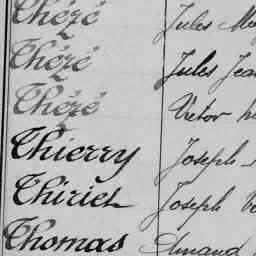 Thézé Jules
Thézé Jules Jean
Thézé Victor
Thierry Joseph
Thiriet Joseph
Thomas Amand